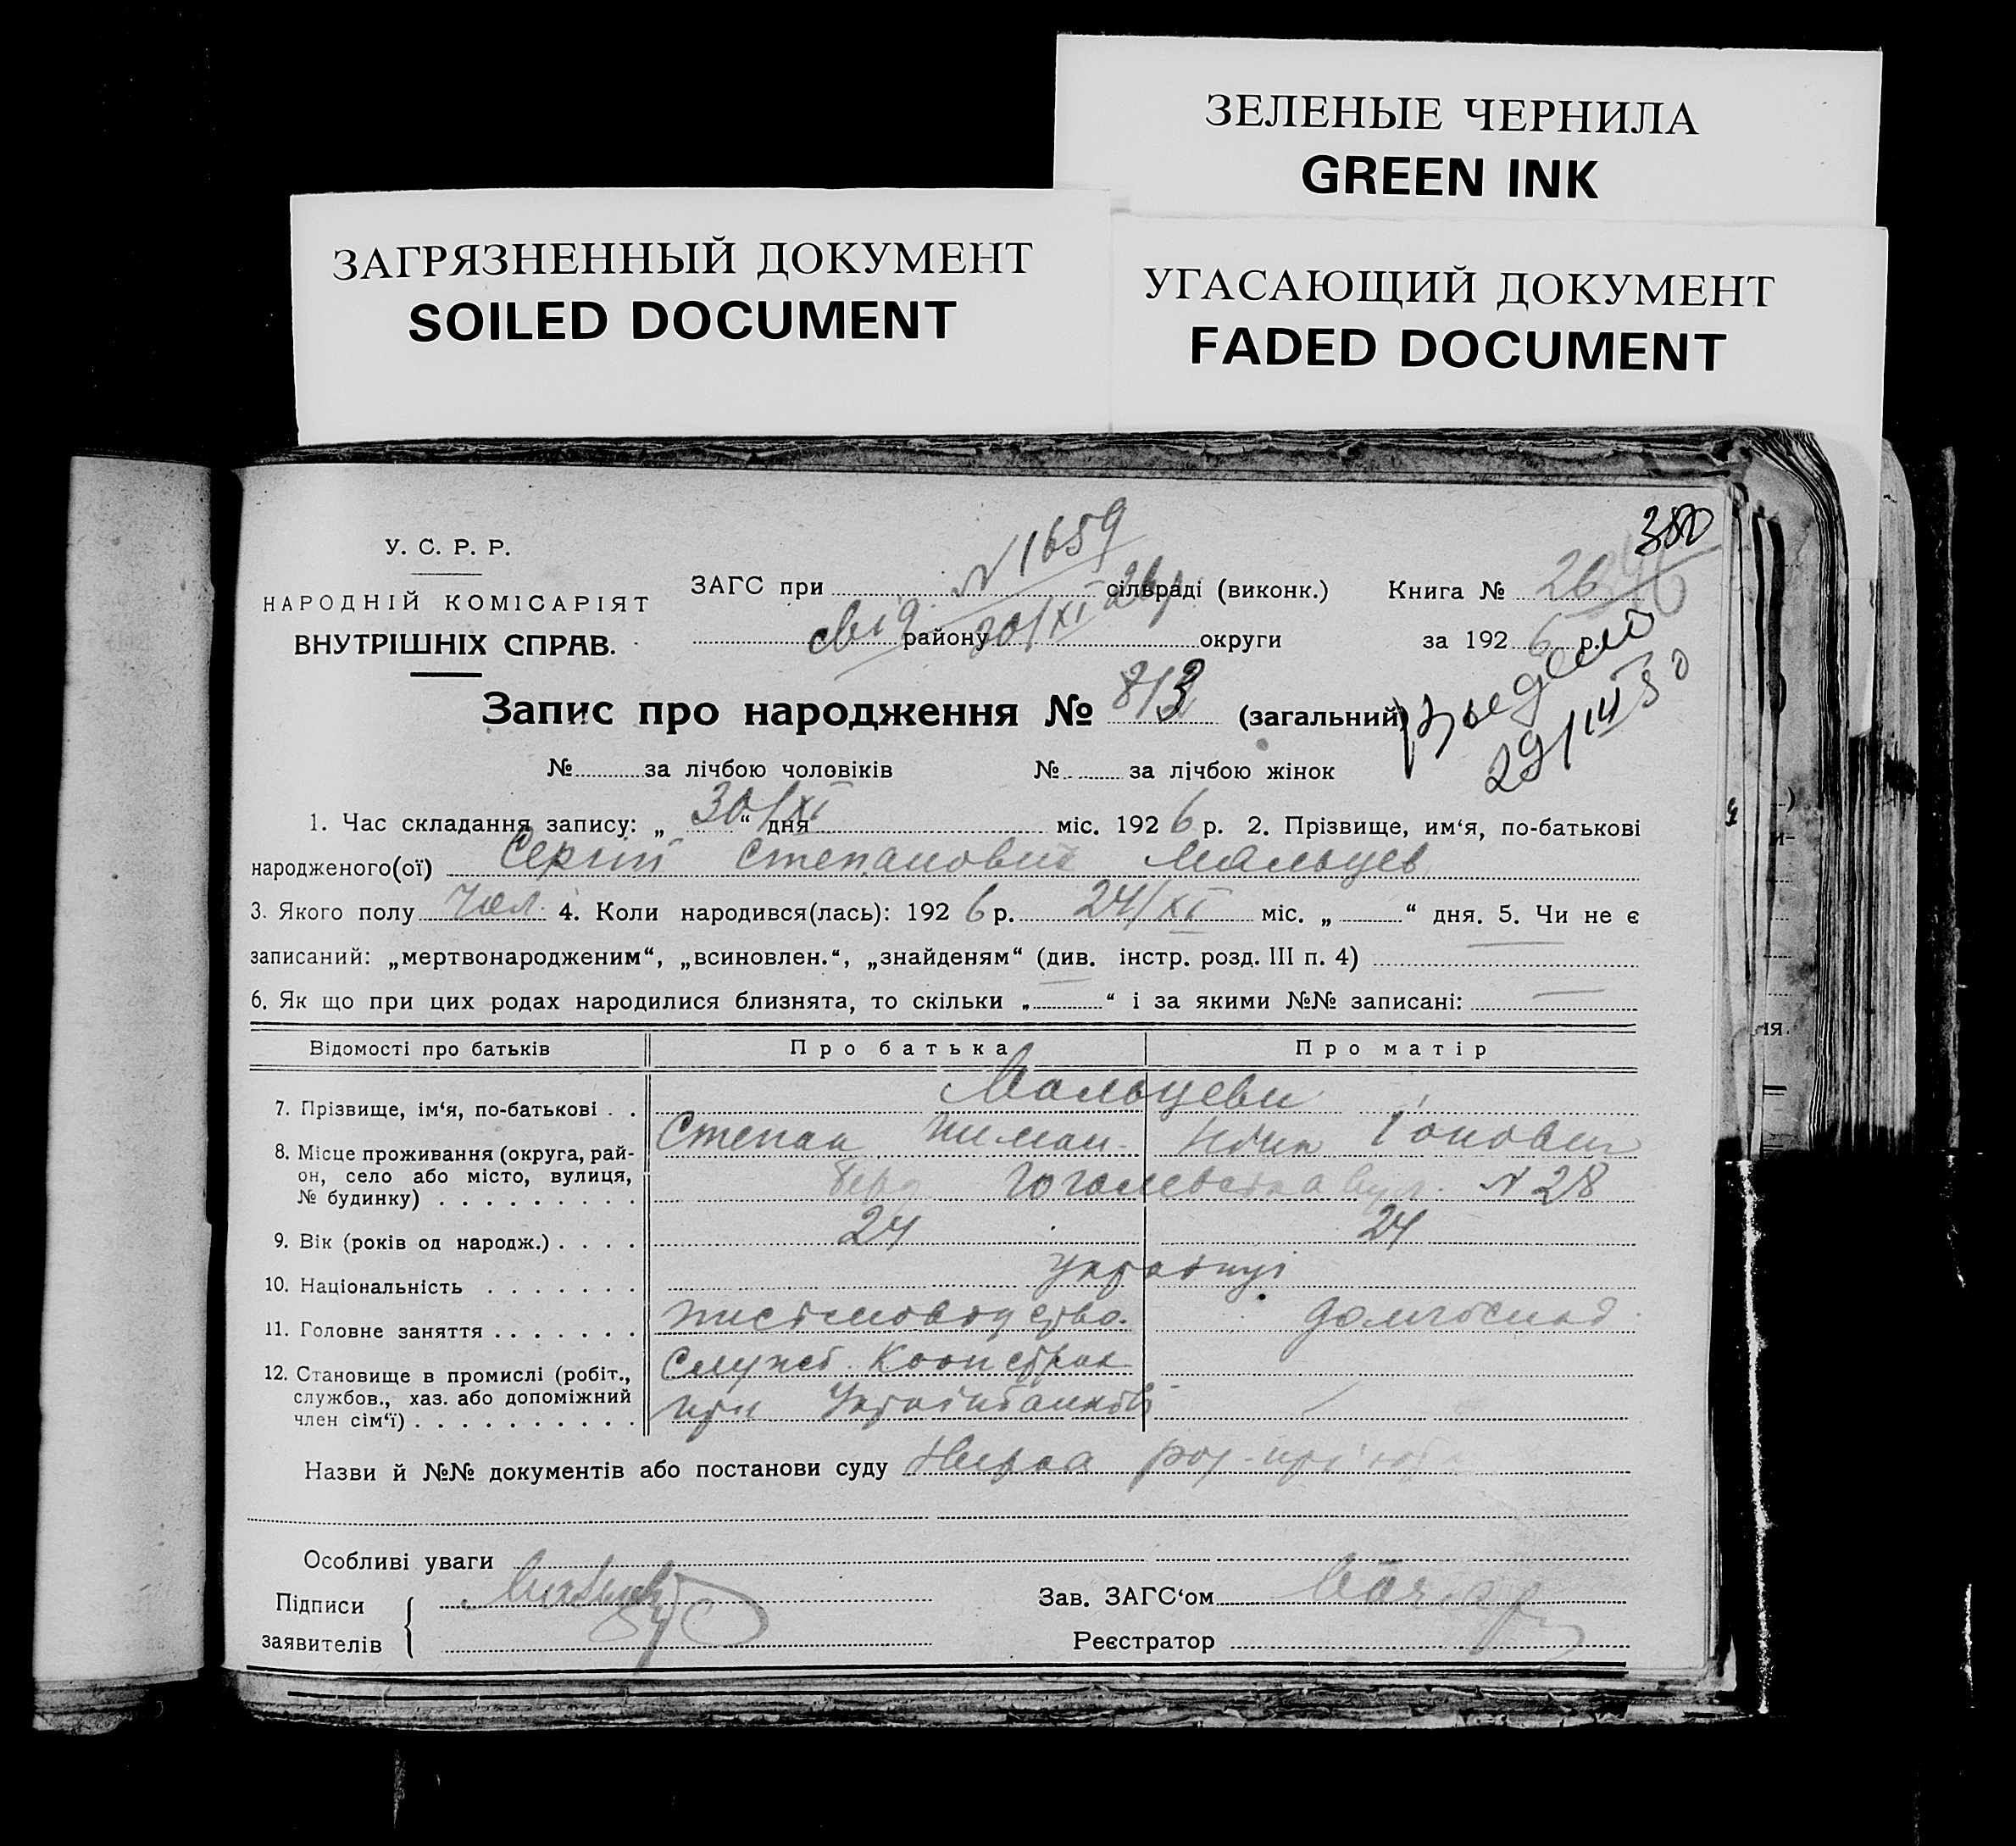 ЗЕЛЕНЫЕ ЧЕРНИЛА
GREEN INK
ЗАГРЯЗНЕННЫЙ ДОКУМЕНТ
SOILED DOCUMENT
УГАСАЮЩИЙ ДОКУМЕНТ
FADED DOCUMENT
У. С. Р. Р.
НАРОДНІЙ КОМІСАРІЯТ
ВНУТРІШНІХ СПРАВ.
N 1659
ЗАГС при сільраді (виконк.)
свід. району 30/XI 26 округи
Книга № 26
за 192 6 р.
29/III 50
Запис про народження № 813 (загальний)
№ за лічбою чоловіків № за лічбою жінок
1. Час складання запису: „ 30/XI “ дня міс. 192 6 р. 2. Прізвище, им‘я, по-батькові
народженого(ої) Сергій Степанович Мальцев
3. Якого полу Чол. 4. Коли народився(лась): 192 6 р. 24/XI міс. „ “ дня. 5. Чи не є
записаний: „мертвонародженим“, „всиновлен.“, „знайденям“ (див. інстр. розд. III п. 4)
6. Як що при цих родах народилися близнята, то скільки „ “ і за якими №№ записані:
Відомості про батьків Про батька Про матір
7. Прізвище, ім‘я, по-батькові . . Мальцеви
Степан
8. Місце проживання (округа, рай-
он, село або місто, вулиця,
№ будинку) . . . . . . . . . Гоголевська вул. N 28
9. Вік (років од народж.) . . . . 24 24
10. Національність . . . . . . . Українці
11. Головне заняття . . . . . . . домгоспод.
12. Становище в промислі (робіт.,
службов., хаз. або допоміжний
член сім‘ї) . . . . . . . . . . при Українбанкові
Назви й №№ документів або постанови суду
Особливі уваги
Підписи
заявителів
Зав. ЗАГС‘ом
Реєстратор